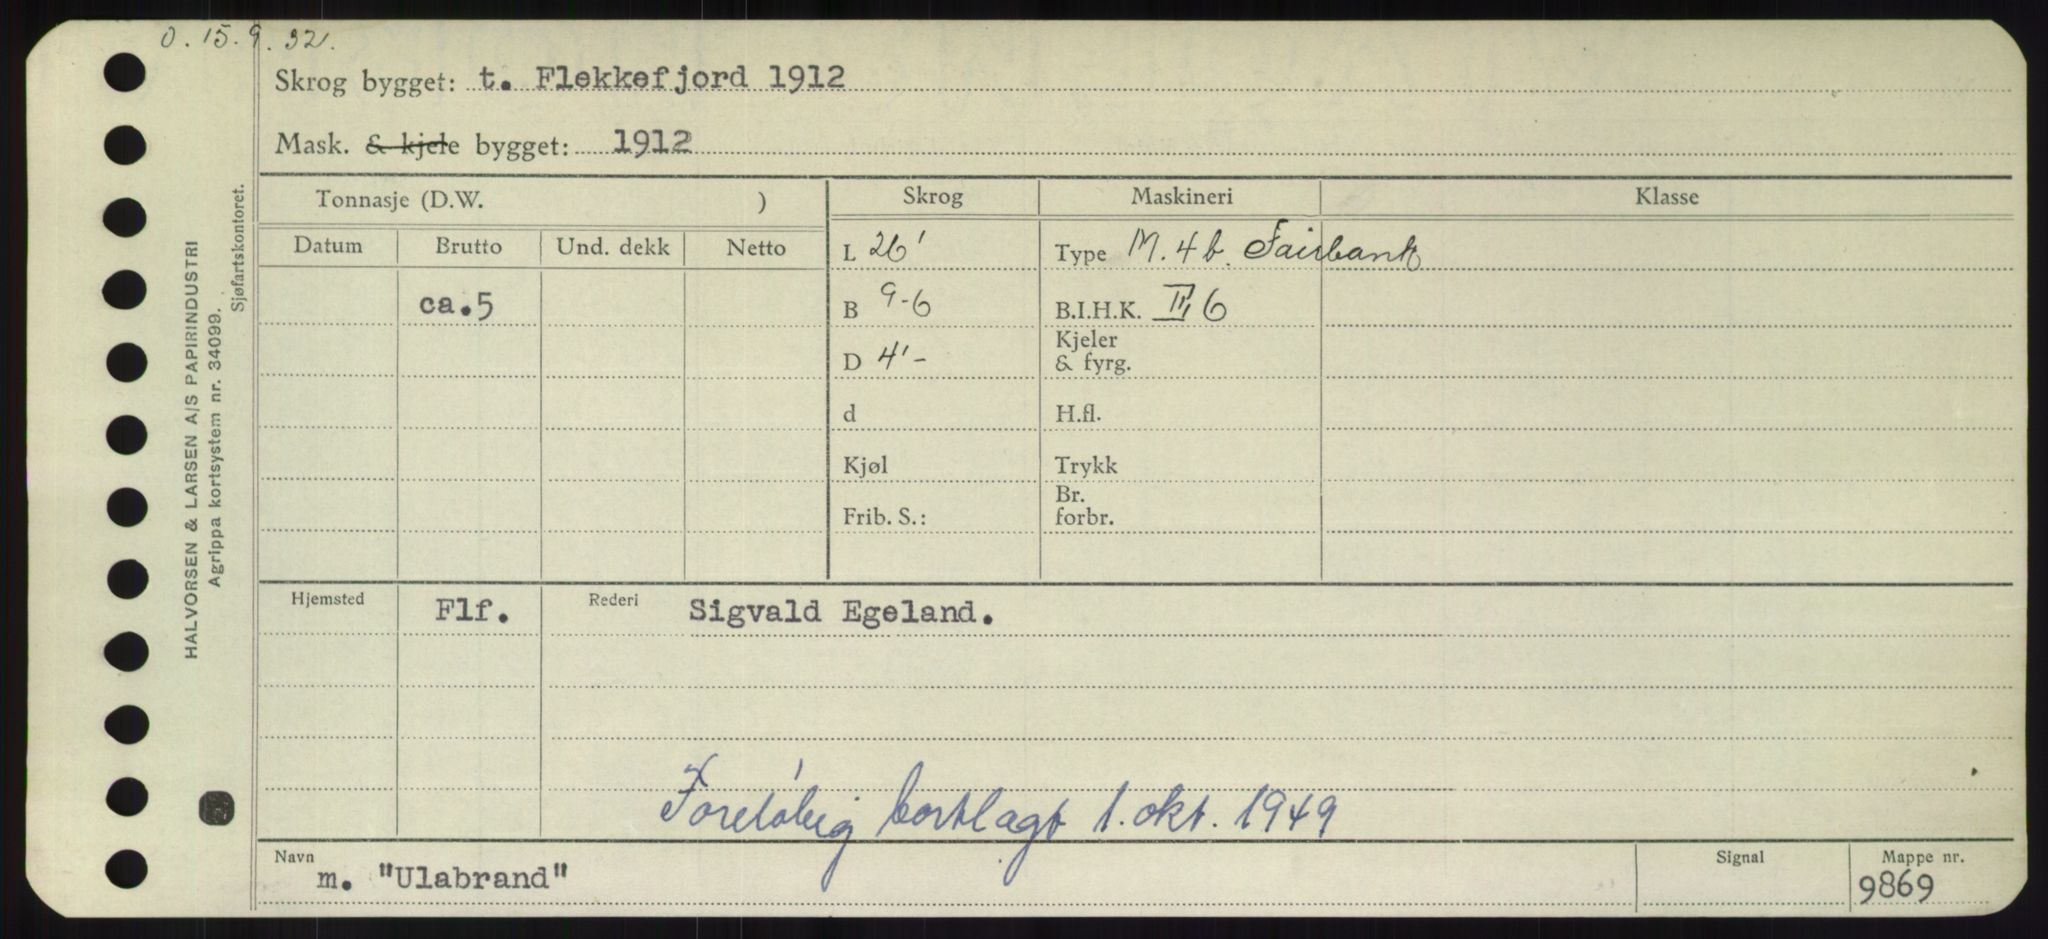 O. 15.9.32.
Skrog bygget: t. Flekkefjord 1912
Mask. & kjele bygget: 1912
Tonnasje (D.W. )
Skrog
Maskineri
Klasse
Datum
Brutto
Und. dekk
Netto
L 26'
Type M. 4 b. Fairbank
ca.5
B 9-6
B.I.H.K. II, 6
D 4'-
Kjeler
& fyrg.
d
H.fl.
Kjøl
Trykk
Frib. S.:
Br.
forbr.
Hjemsted
Flf.
Rederi
Sigvald Egeland.
Foreløbig bortlagt 1. okt. 1949
Navn
m. "Ulabrand"
Signal
Mappe nr.
9869
HALVORSEN & LARSEN A/S PAPIRINDUSTRI
Agrippa kortsystem nr. 34099.
Sjøfartskontoret.